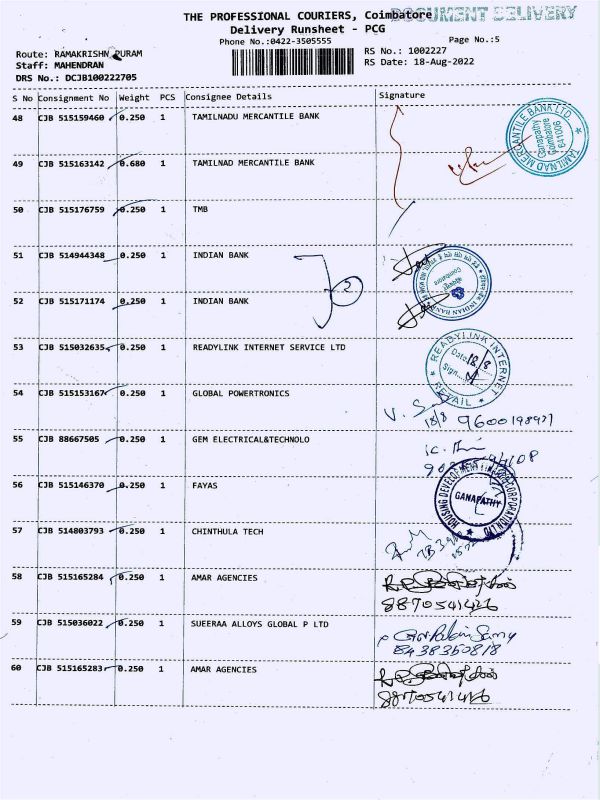 THE PROFESSIONAL COURIERS, Coimbatore
DOCUMENT DELIVERY
Delivery Runsheet - PCG
Phone No.:0422-3505555
Page No.:5
Route: RAMAKRISHN PURAM
RS No.: 1002227
Staff: MAHENDRAN
RS Date: 18-Aug-2022
DRS No.: DCJB100222705
S No Consignment No Weight PCS Consignee Details Signature
48 CJB 515159460 0.250 1 TAMILNADU MERCANTILE BANK
TAMILNAD MERCANTILE BANK LTD
Ganapathy
Coimbatore
641006
49 CJB 515163142 0.680 1 TAMILNAD MERCANTILE BANK
50 CJB 515176759 0.250 1 TMB
51 CJB 514944348 0.250 1 INDIAN BANK
2
INDIAN BANK
Coimbatore
52 CJB 515171174 0.250 1 INDIAN BANK
53 CJB 515032635 0.250 1 READYLINK INTERNET SERVICE LTD
READYLINK INTERNET
Date 18/8
Sign
RETAIL
54 CJB 515153167 0.250 1 GLOBAL POWERTRONICS
18/8 9600198927
55 CJB 88667505 0.250 1 GEM ELECTRICAL&TECHNOLO
56 CJB 515146370 0.250 1 FAYAS
HOUSING DEVELOPMENT FINANCE CORPORATION LTD
GANAPATHY
57 CJB 514803793 0.250 1 CHINTHULA TECH
58 CJB 515165284 0.250 1 AMAR AGENCIES
8870541426
59 CJB 515036022 0.250 1 SUEERAA ALLOYS GLOBAL P LTD
8438350818
60 CJB 515165283 0.250 1 AMAR AGENCIES
8870541426